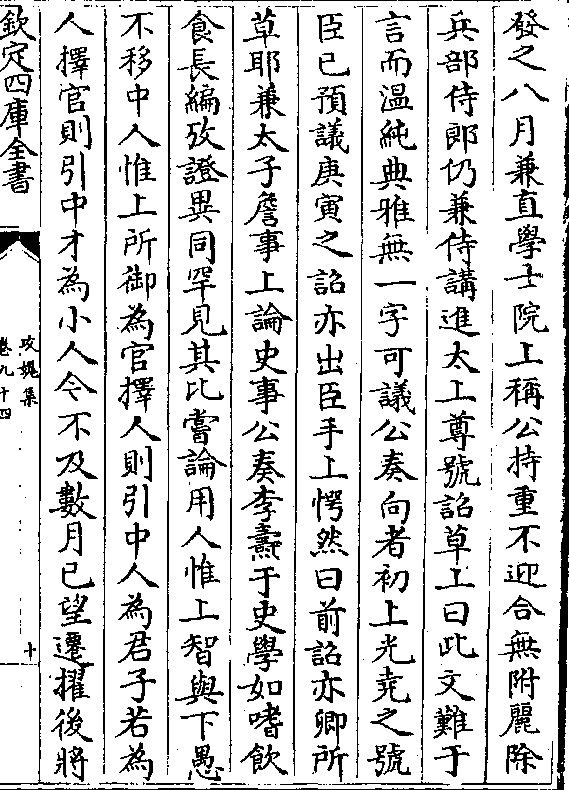 發之八月兼直學士院上稱公持重不迎合無附麗除
兵部侍郎仍兼侍講進太上尊號詔草上曰此文難于
言而溫純典雅無一字可議公奏向者初上光堯之號
臣已預議庚寅之詔亦出臣手上愕然曰前詔亦卿所
草耶兼太子詹事上論史事公奏李燾于史學如嗜飲
食長編攷證異同罕見其比嘗論用人惟上智與下愚
不移中人惟上所御為官擇人則引中人為君子若為
人擇官則引中才為小人令不及數月已望遷擢後將
欽定四庫全書
攻媿集
卷九十四
十